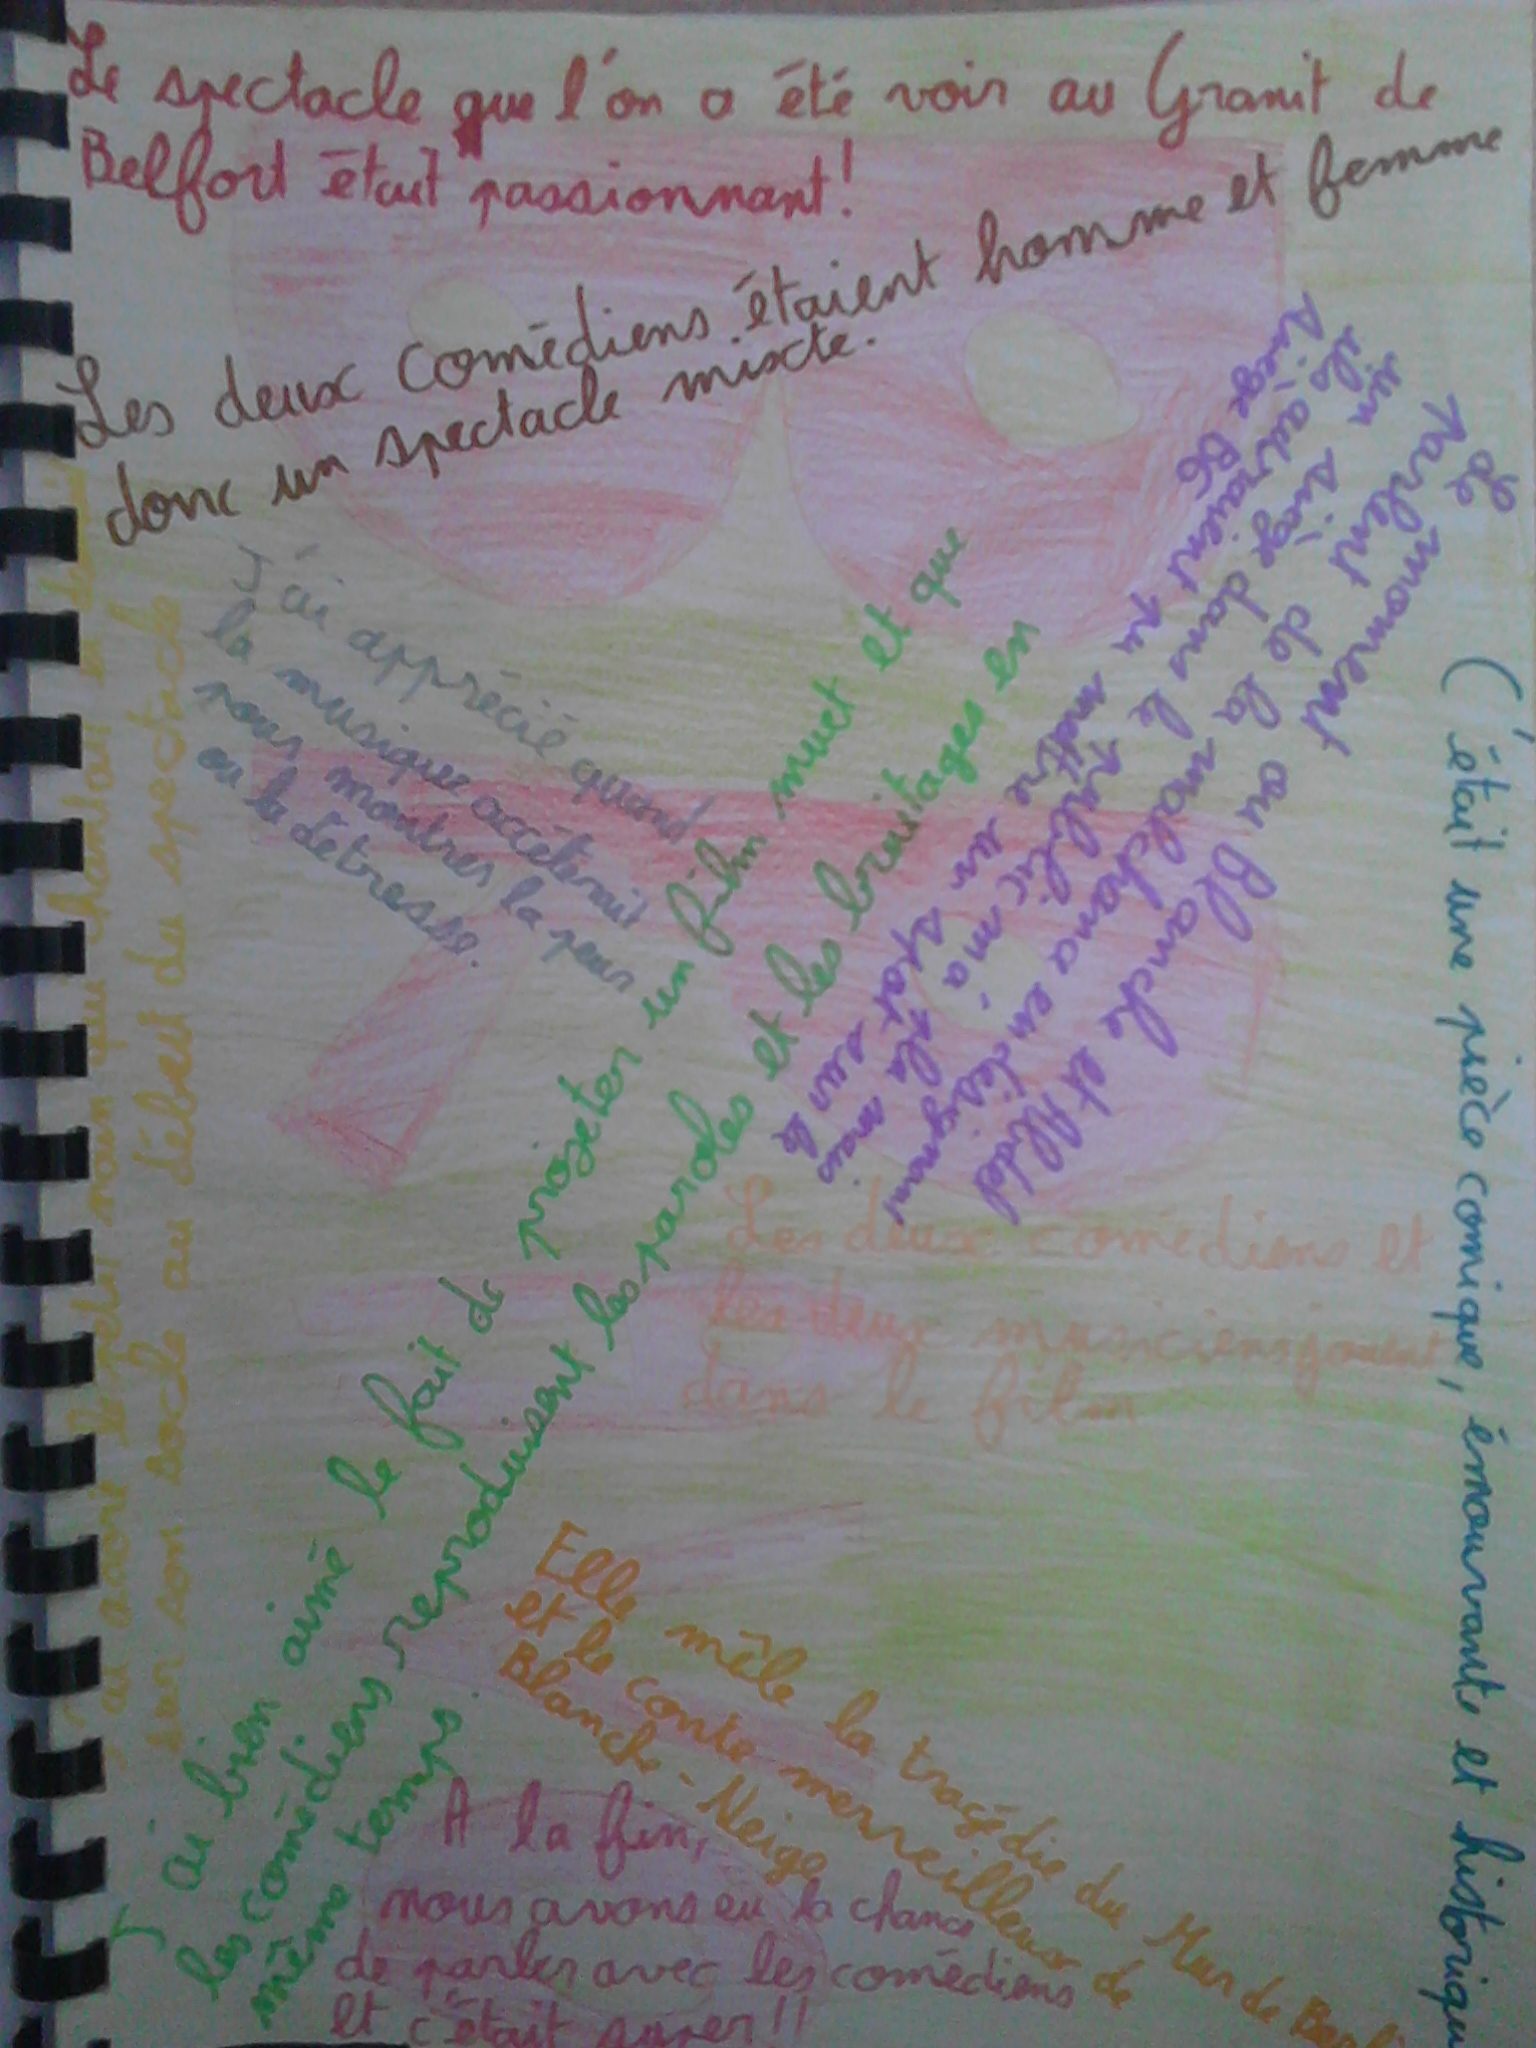 Le spectacle que l'on a été voir au Granit de
Belfort était passionnant!
Les deux comédiens étaient homme et femme
donc un spectacle mixte.
J'ai apprécié quand
la musique accélerait
pour montrer la peur
ou la détresse.
J'ai bien aimé le fait de projeter un film muet et que
les comédiens reproduisent les paroles et les bruitages en
même temps.
moment ou Blanche et
Parlent de la
un siège dans le public
ils auraient pu mettre un spot sur le
siège B6
C'était une pièce comique, émouvante et historique
Les deux comédiens et
les deux musiciens jouent
dans le film
Elle mêle la tragédie du Mur de
et le conte merveilleux de
Blanche-Neige
A la fin,
nous avons eu la chance
de parler avec les comédiens
et c'était super!!
adoré le petit nain qui chantait
sur son socle au début du spectacle